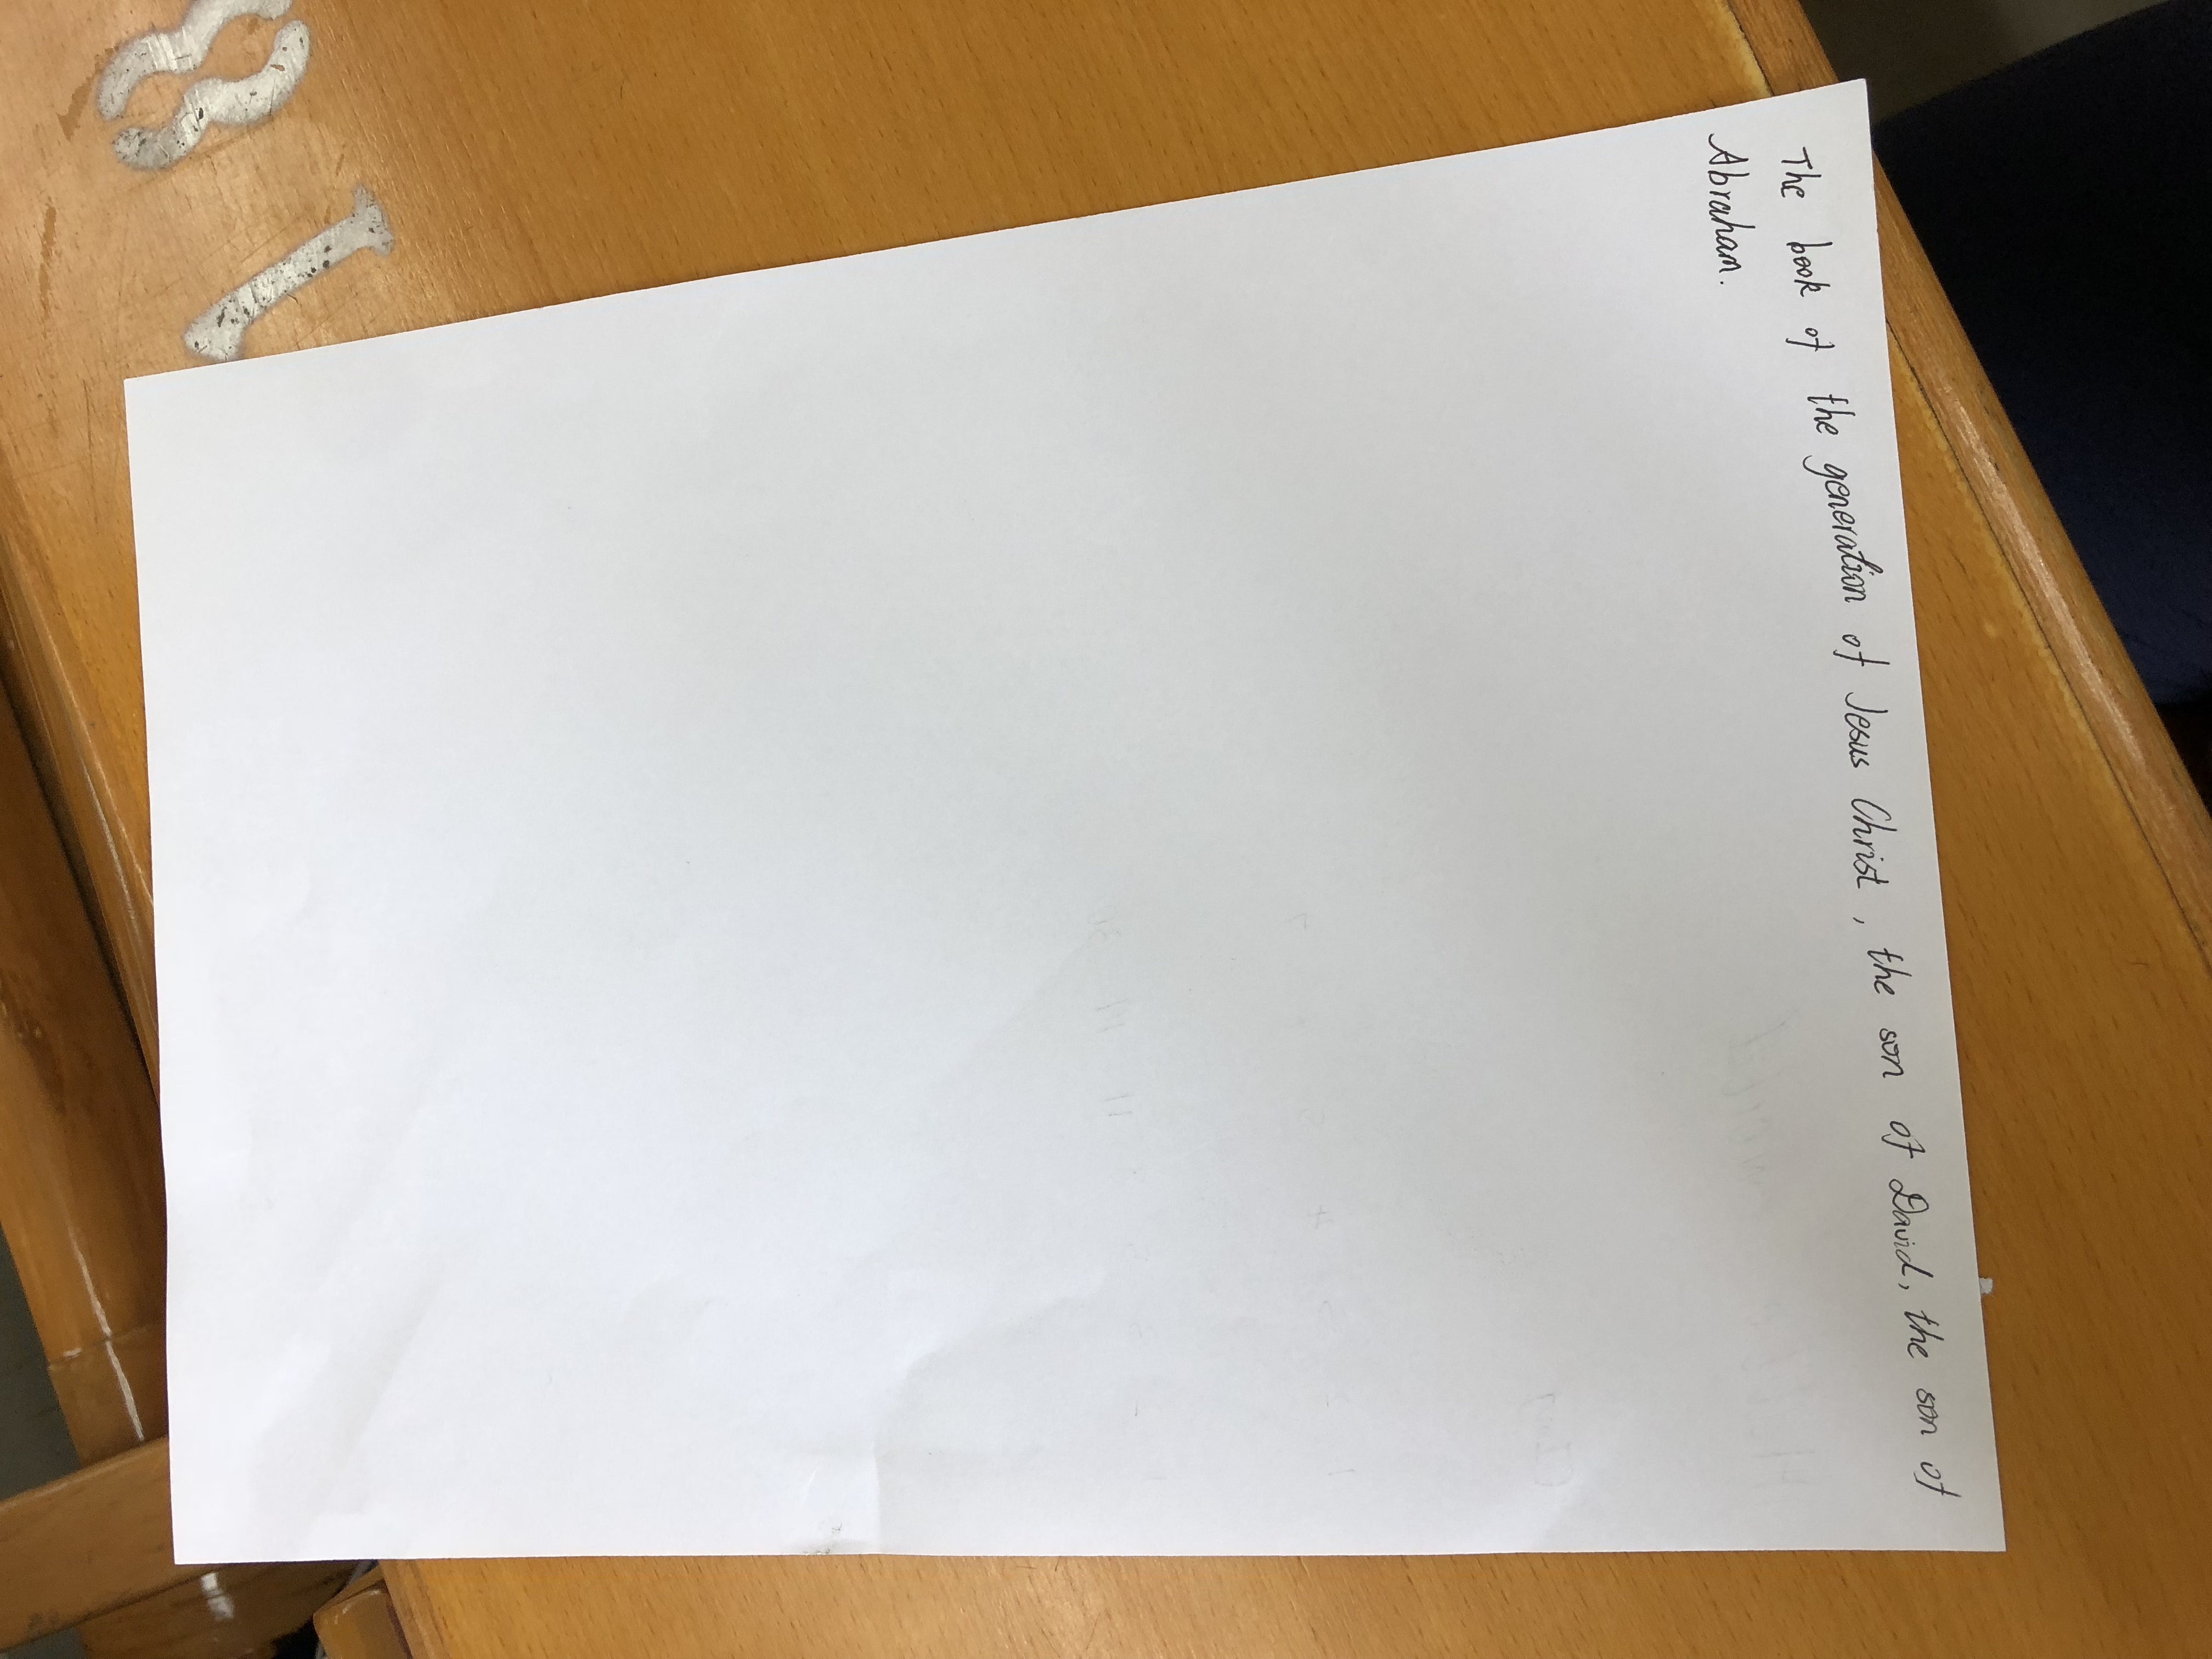 The book of the generation of Jesus Christ, the son of David, the son of
Abraham.
18